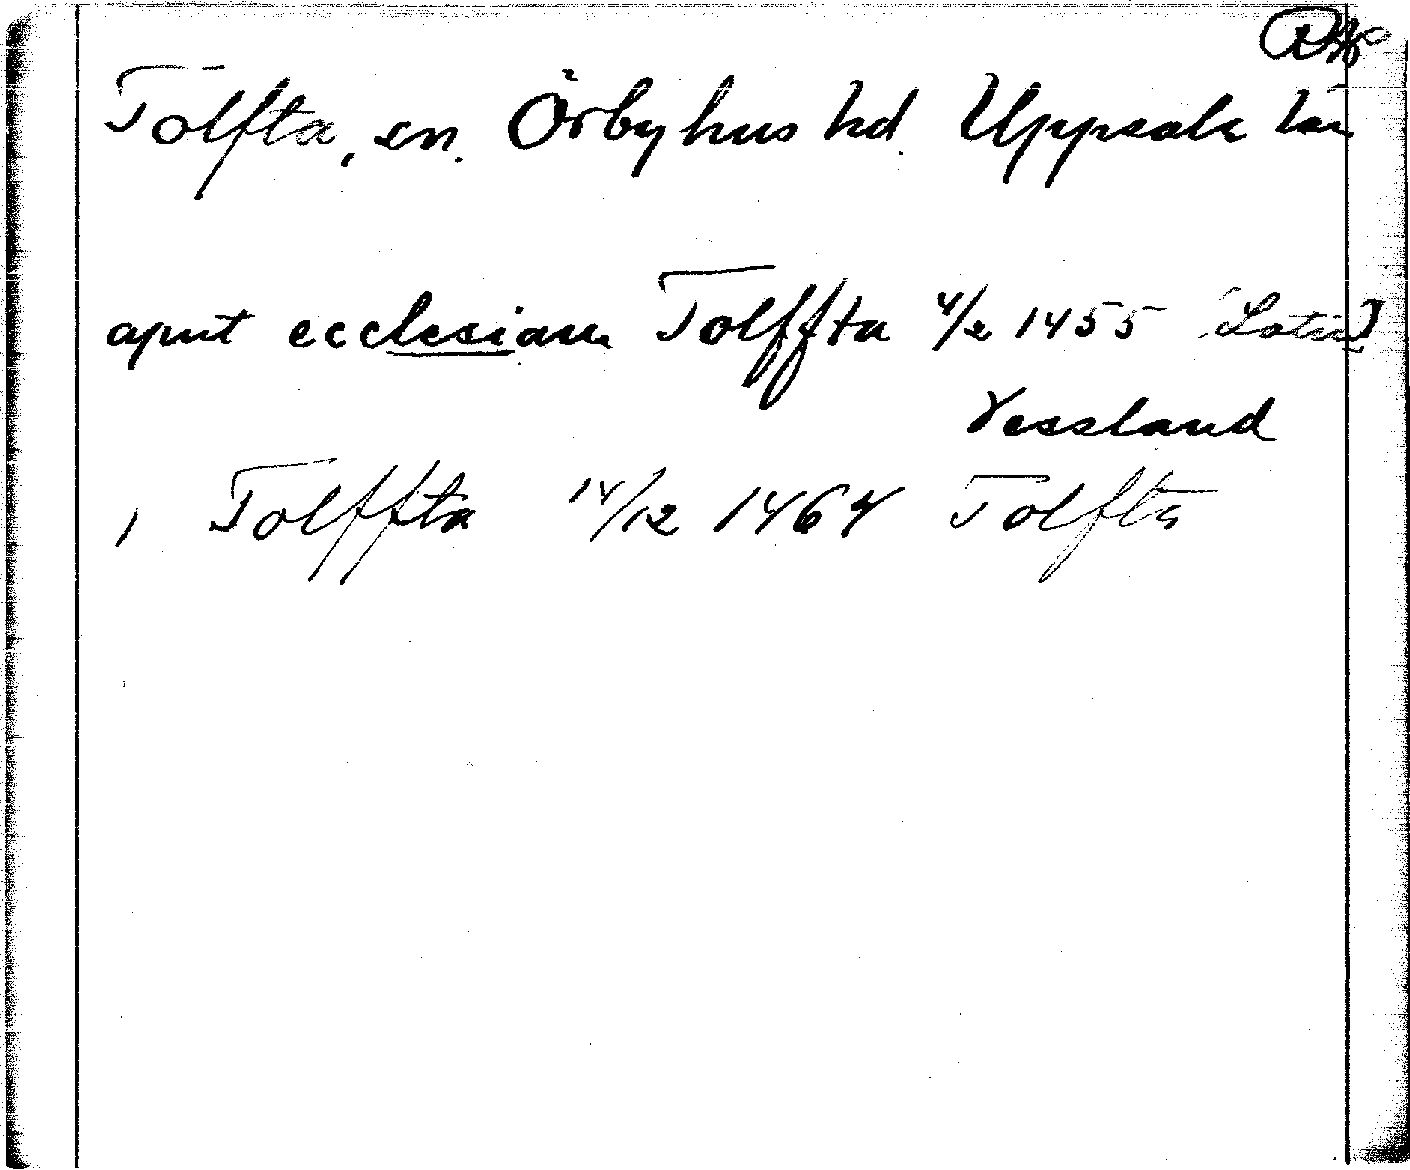 Tolfta, sn. Örbyhus hd. Uppsala län
aput ecclesiam Tolffta 4/2 1455 [Latin]
Vessland
i Tolffta 14/12 1464 Tolfta